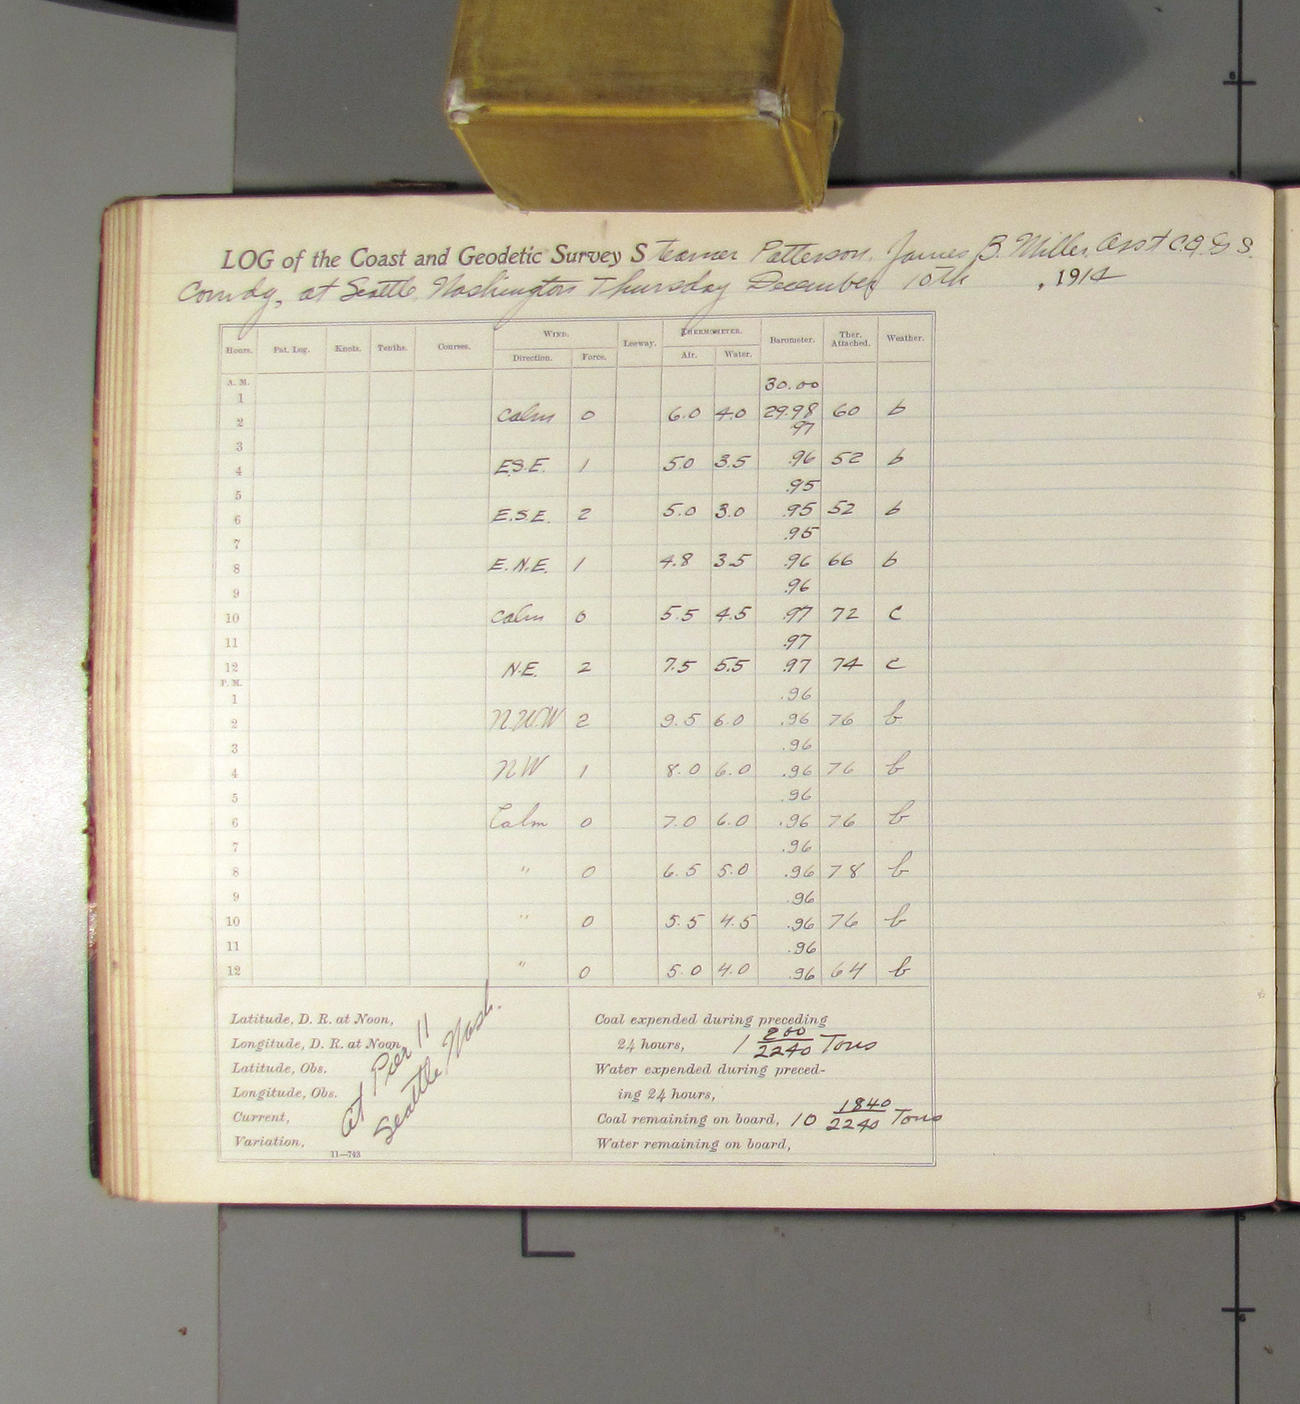 LOG of the Coast and Geodetic Survey Steamer Patterson, James B. Miller, Asst C.& G. S.
Comdg, at Seattle, Washington Thursday December 10th , 1914
Hours. Pat. Log. Knots. Tenths. Courses. WIND. Leeway. THERMOMETER. Barometer. Ther. Attached. Weather.
Direction. Force. Air. Water.
A. M.
1 30.00
2 Calm 0 6.0 4.0 29.98 60 b
3 .97
4 E.S.E. 1 5.0 3.5 .96 52 b
5 .95
6 E.S.E. 2 5.0 3.0 .95 52 b
7 .95
8 E.N.E. 1 4.8 3.5 .96 66 b
9 .96
10 Calm 0 5.5 4.5 .97 72 c
11 .97
12 N.E. 2 7.5 5.5 .97 74 c
P. M.
1 .96
2 N.W.W 2 9.5 6.0 .96 76 b
3 .96
4 NW 1 8.0 6.0 .96 76 b
5 .96
6 Calm 0 7.0 6.0 .96 76 b
7 .96
8 " 0 6.5 5.0 .96 78 b
9 .96
10 " 0 5.5 4.5 .96 76 b
11 .96
12 " 0 5.0 4.0 .96 64 b
Latitude, D. R. at Noon,
Longitude, D. R. at Noon,
Latitude, Obs.
Longitude, Obs.
Current,
Variation,
At Pier 11
Seattle Wash.
11—743
Coal expended during preceding
24 hours, 1 800/2240 Tons
Water expended during preced-
ing 24 hours,
Coal remaining on board, 10 1840/2240 Tons
Water remaining on board,